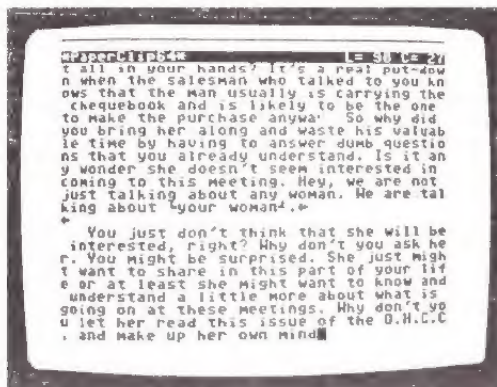 *PaperClip64* L= 98 C= 27
t all in your hands? It's a real put-dow
n when the salesman who talked to you kn
ows that the man usually is carrying the
chequebook and is likely to be the one
to make the purchase anyway So why did
you bring her along and waste his valuab
le time by having to answer dumb questio
ns that you already understand. Is it an
y wonder she doesn't seem interested in
coming to this meeting. Hey, we are not
just talking about any woman. We are tal
king about your woman.←
←
You just don't think that she will be
interested, right? Why don't you ask he
r. You might be surprised. She just migh
t want to share in this part of your lif
e or at least she might want to know and
understand a little more about what is
going on at these meetings. Why don't yo
u let her read this issue of the O.H.C.C
. and make up her own mind